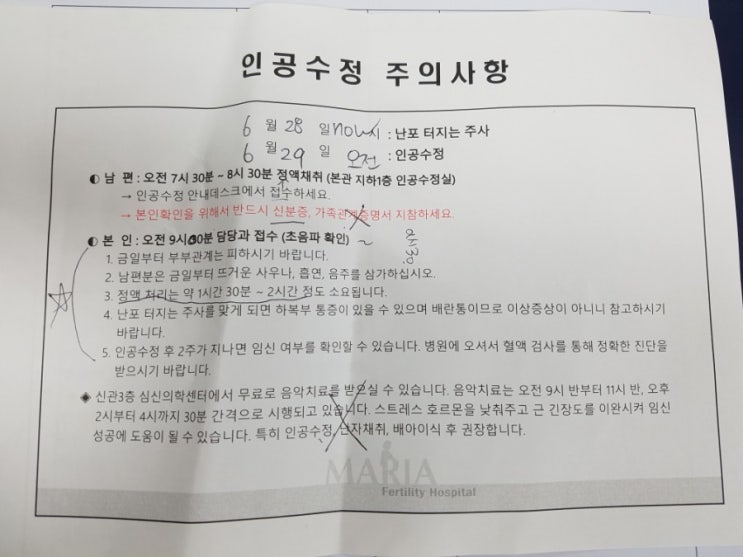 인공수정 주의사항
6월 28일 now시 : 난포 터지는 주사
6월 29일 오전 : 인공수정
◐ 남 편 : 오전 7시 30분 ~ 8시 30분 정액채취 (본관 지하1층 인공수정실)
→ 인공수정 안내데스크에서 접수하세요.
→ 본인확인을 위해서 반드시 신분증, 가족관계증명서 지참하세요.
◐ 본 인 : 오전 9시00분 담당과 접수 (초음파 확인) ~
1. 금일부터 부부관계는 피하시기 바랍니다.
2. 남편분은 금일부터 뜨거운 사우나, 흡연, 음주를 삼가하십시오.
3. 정액 처리는 약 1시간 30분 ~ 2시간 정도 소요됩니다.
4. 난포 터지는 주사를 맞게 되면 하복부 통증이 있을 수 있으며 배란통이므로 이상증상이 아니니 참고하시기
바랍니다.
5. 인공수정 후 2주가 지나면 임신 여부를 확인할 수 있습니다. 병원에 오셔서 혈액 검사를 통해 정확한 진단을
받으시기 바랍니다.
◈ 신관3층 심신의학센터에서 무료로 음악치료를 받으실 수 있습니다. 음악치료는 오전 9시 반부터 11시 반, 오후
2시부터 4시까지 30분 간격으로 시행되고 있습니다. 스트레스 호르몬을 낮춰주고 근 긴장도를 이완시켜 임신
성공에 도움이 될 수 있습니다. 특히 인공수정, 난자채취, 배아이식 후 권장합니다.
MARIA
Fertility Hospital